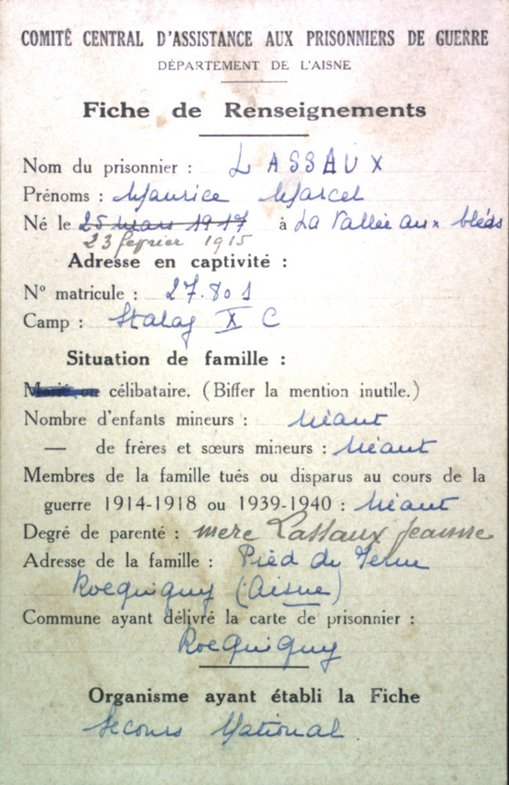 COMITÉ CENTRAL D'ASSISTANCE AUX PRISONNIERS DE GUERRE
DÉPARTEMENT DE L'AISNE
Fiche de Renseignements
Nom du prisonnier : LASSAUX
Prénoms : Maurice Marcel
Né le 25 mars 1917 à La Vallée aux bléds
23 fevrier 1915
Adresse en captivité :
N° matricule : 27.801
Camp : Stalag X C
Situation de famille :
Marié ou célibataire. (Biffer la mention inutile.)
Nombre d'enfants mineurs : Néant
— de frères et sœurs mineurs : Néant
Membres de la famille tués ou disparus au cours de la
guerre 1914-1918 ou 1939-1940 : Néant
Degré de parenté : mere Lassaux Jeanne
Adresse de la famille : Pied du
Rocquigny (Aisne)
Commune ayant délivré la carte de prisonnier :
Rocquigny
Organisme ayant établi la Fiche
Secours National.